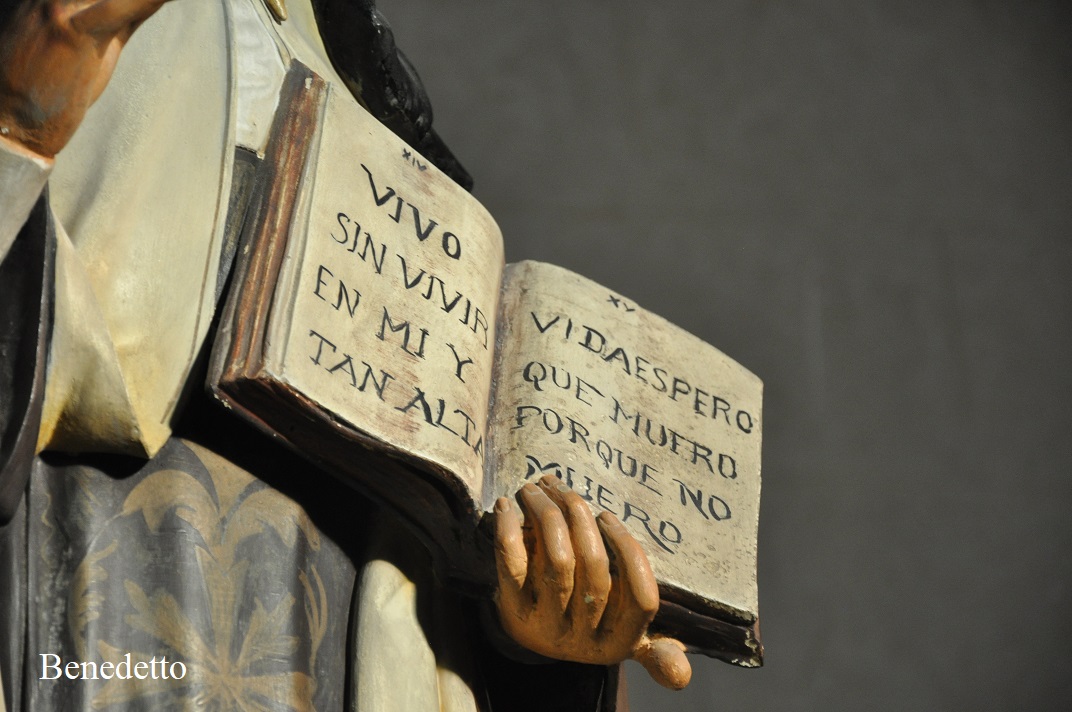 XIV
VIVO
SIN VIVIR
EN MI Y
TAN ALTA
XV
VIDAESPERO
QUE MUERO
PORQUE NO
MUERO
Benedetto